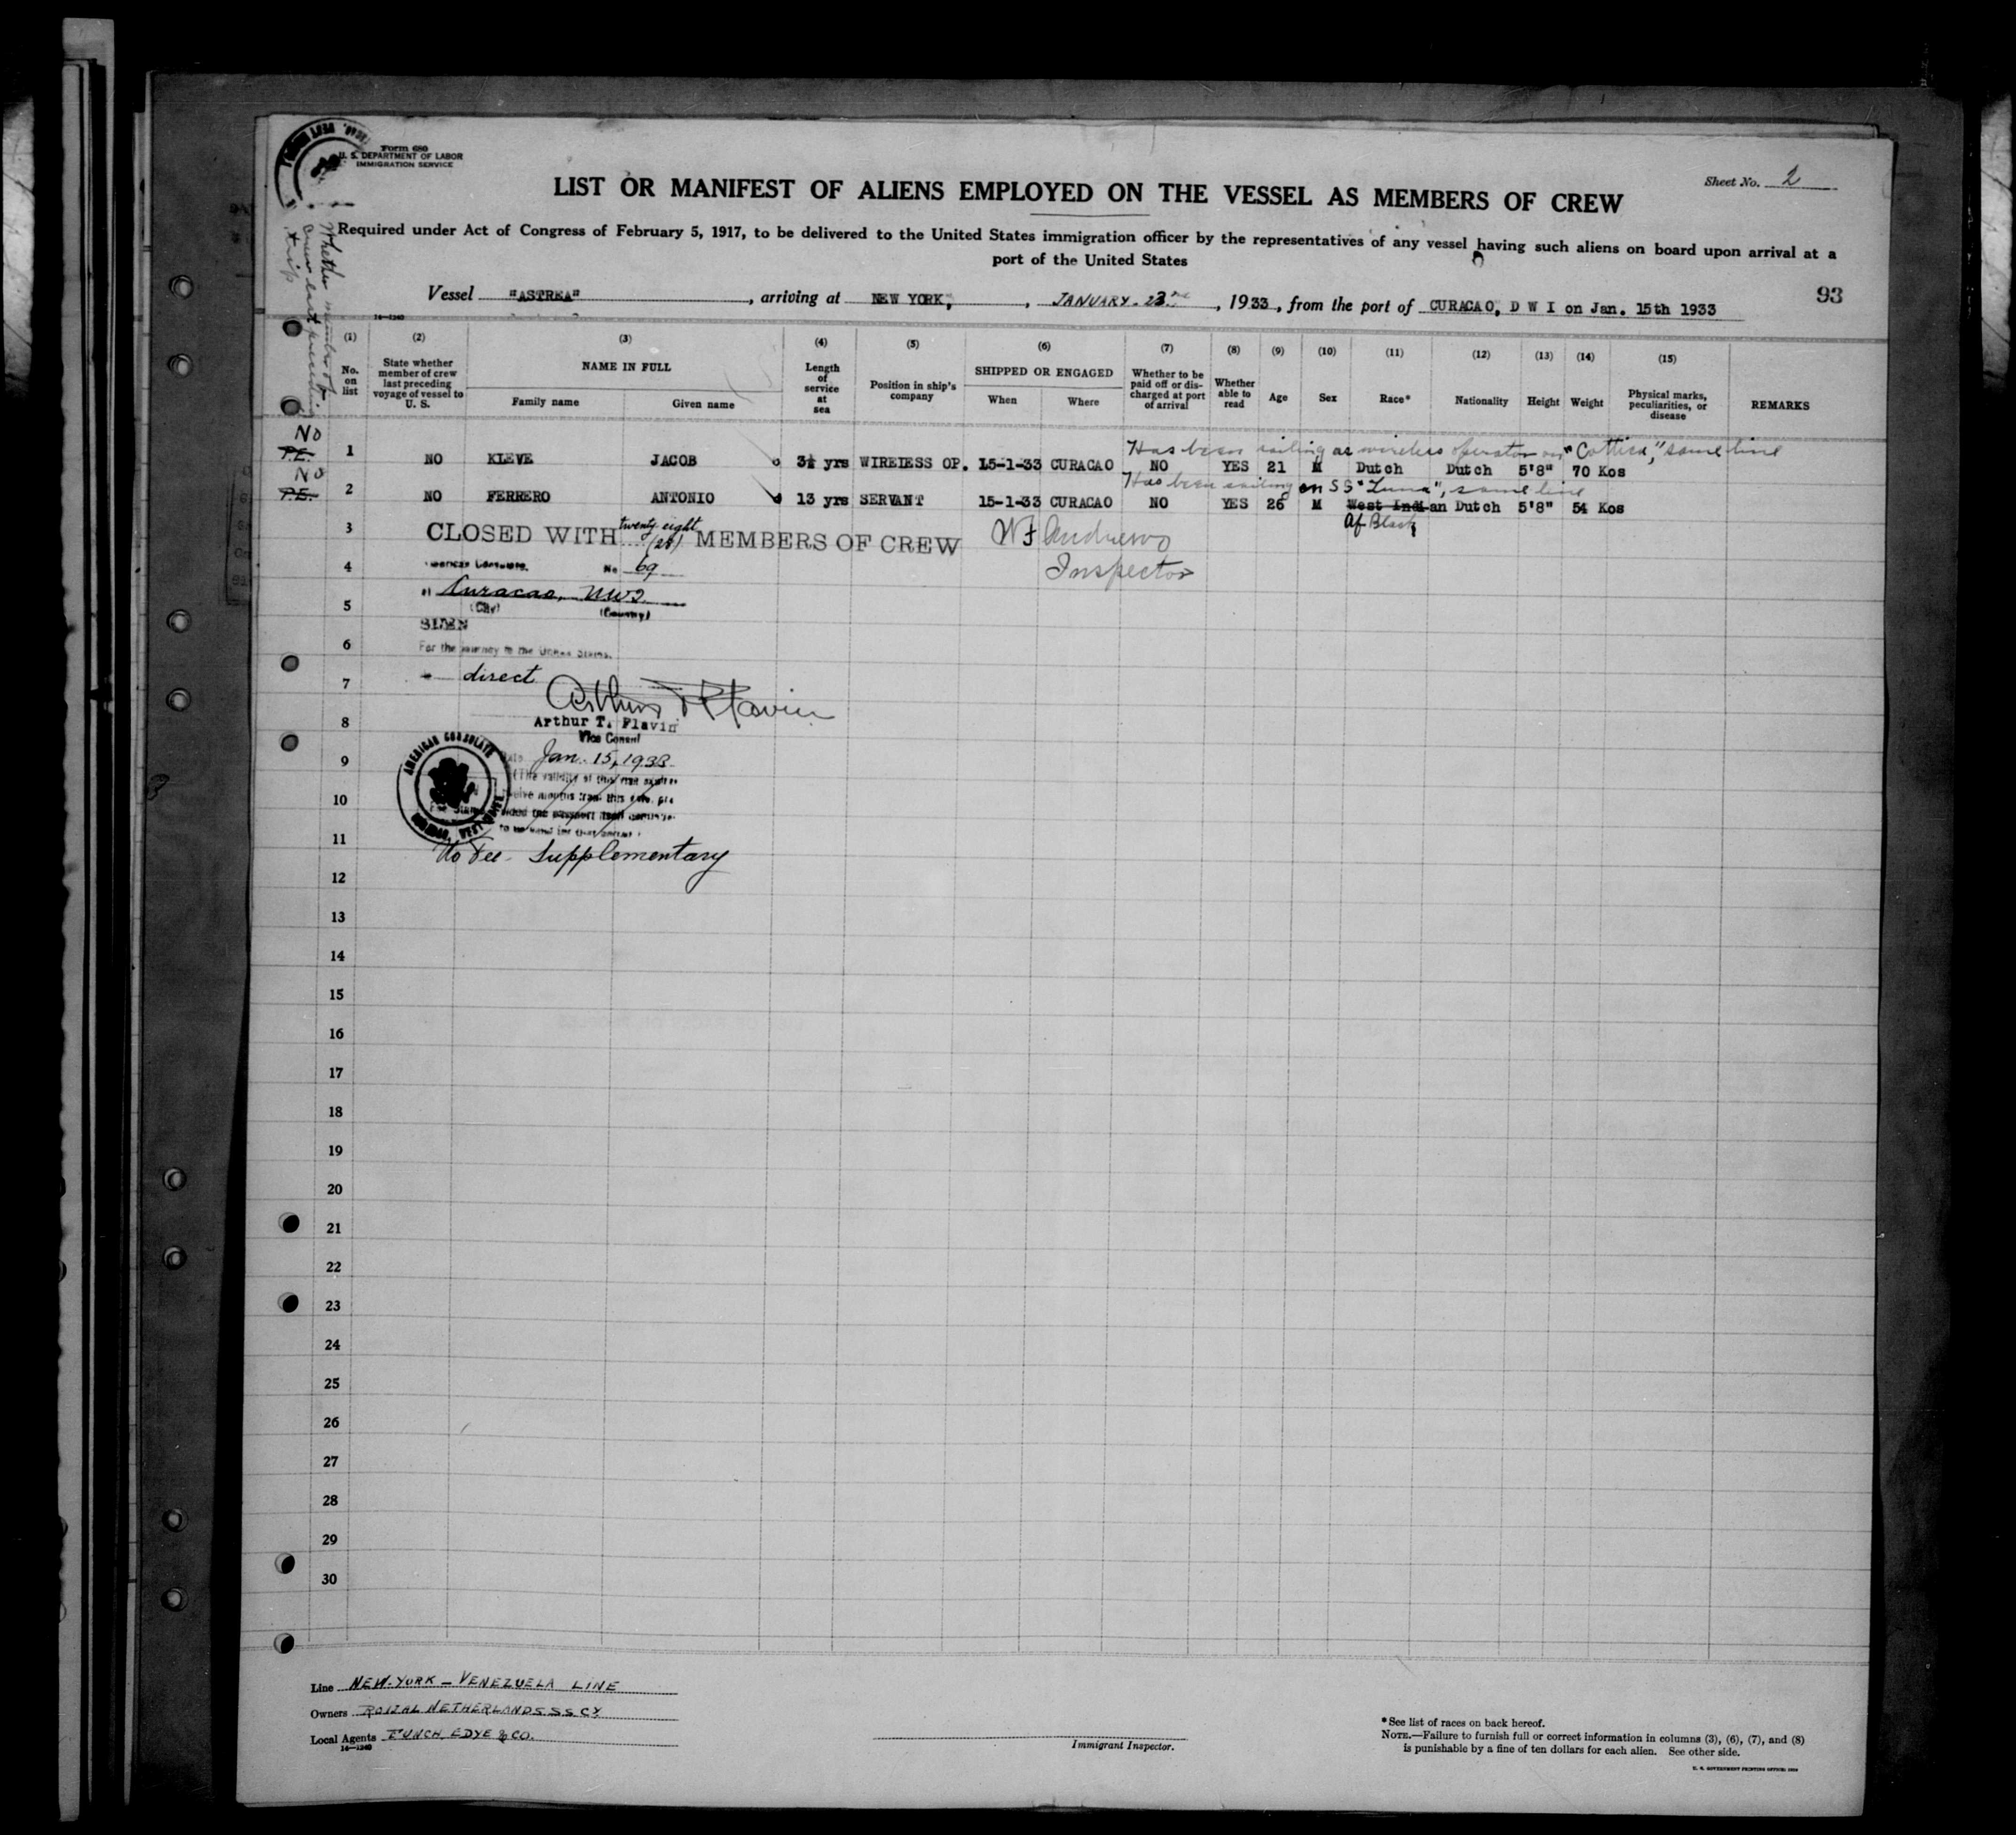 Form 680
U. S. DEPARTMENT OF LABOR
IMMIGRATION SERVICE
Sheet No. 2
LIST OR MANIFEST OF ALIENS EMPLOYED ON THE VESSEL AS MEMBERS OF CREW
Required under Act of Congress of February 5, 1917, to be delivered to the United States immigration officer by the representatives of any vessel having such aliens on board upon arrival at a
port of the United States
Vessel "ASTREA", arriving at NEW YORK, , JANUARY 23rd, 1933, from the port of CURACAO, D W I on Jan. 15th 1933
93
14—1240
Whether member of
crew last preceding
trip
(1) (2) (3) (4) (5) (6) (7) (8) (9) (10) (11) (12) (13) (14) (15)
No. on list
State whether member of crew last preceding voyage of vessel to U. S.
NAME IN FULL
Family name Given name
Length of service at sea
Position in ship's company
SHIPPED OR ENGAGED
When Where
Whether to be paid off or discharged at port of arrival
Whether able to read
Age
Sex
Race*
Nationality
Height
Weight
Physical marks, peculiarities, or disease
REMARKS
Has been sailing as wireless operator on "Cottica," same line
No P.E. 1 NO KLEVE JACOB 3½ yrs WIRELESS OP. 15-1-33 CURACAO NO YES 21 M Dutch Dutch 5'8" 70 Kos
Has been sailing on SS "Luna", same line
No P.E. 2 NO FERRERO ANTONIO 13 yrs SERVANT 15-1-33 CURACAO NO YES 26 M West Indian Dutch 5'8" 54 Kos
Af. Black
3 CLOSED WITH twenty eight (28) MEMBERS OF CREW W F Andrews
Inspector
4 American Consulate. No 69
5 at Curacao, NWI
(City) (Country)
SEEN
6 For the journey to the United States.
7 direct
Arthur T. Flavin
8 Arthur T. Flavin
Vice Consul
9 Date Jan. 15, 1933
(The validity of this visa expires
10 twelve months from this date, pro-
vided the passport itself continues
to be valid for that period
AMERICAN CONSULATE
11 No Fee. Supplementary
12
13
14
15
16
17
18
19
20
21
22
23
24
25
26
27
28
29
30
Line NEW-YORK — VENEZUELA LINE
Owners ROYAL NETHERLANDS SS CY
Local Agents FUNCH, EDYE & CO.
14—1240
Immigrant Inspector.
*See list of races on back hereof.
NOTE.—Failure to furnish full or correct information in columns (3), (6), (7), and (8)
is punishable by a fine of ten dollars for each alien. See other side.
U. S. GOVERNMENT PRINTING OFFICE: